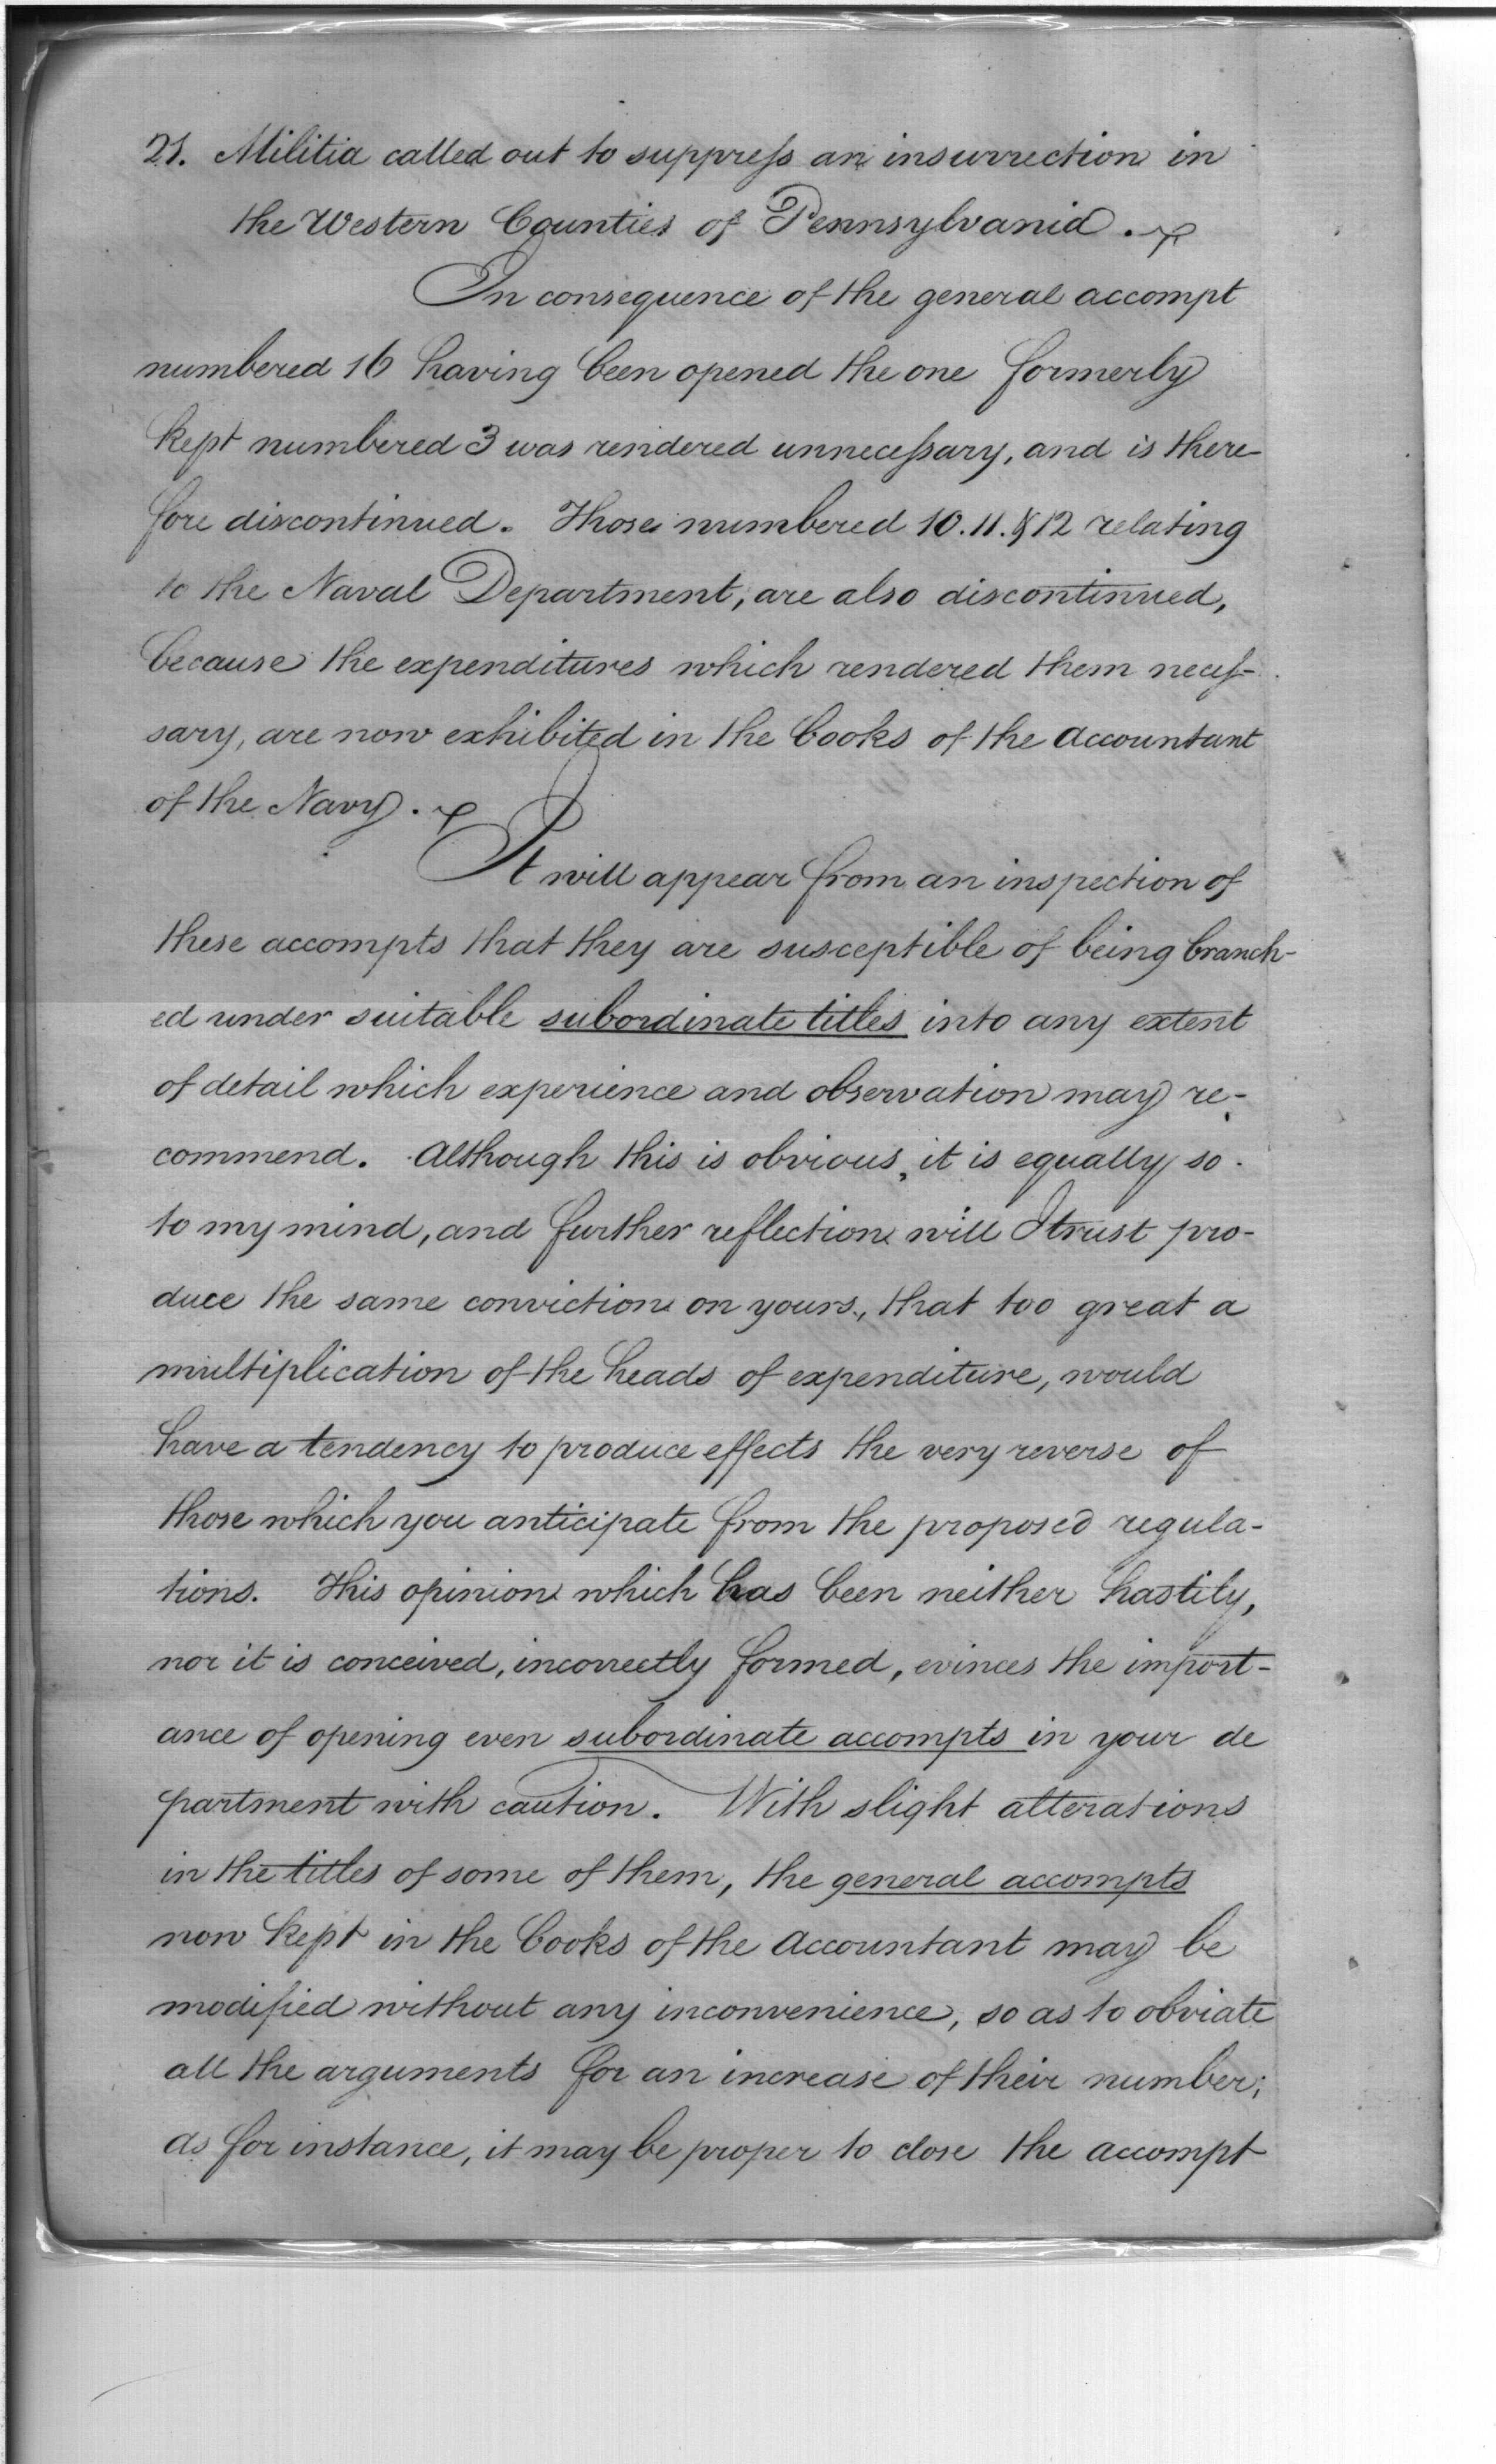 21. Militia called out to suppress an insurrection in
the Western Counties of Pennsylvania.
In consequence of the general accompt
numbered 16 having been opened the one formerly
kept numbered 3 was rendered unnecessary, and is there-
fore discontinued. Those numbered 10. 11. & 12 relating
to the Naval Department, are also discontinued,
because the expenditures which rendered them neces-
sary, are now exhibited in the Books of the Accountant
of the Navy.
It will appear from an inspection of
these accompts that they are susceptible of being branch-
ed under suitable subordinate titles into any extent
of detail which experience and observation may re-
commend. Although this is obvious, it is equally so
to my mind, and further reflection will I trust pro-
duce the same conviction on yours, that too great a
multiplication of the heads of expenditure, would
have a tendency to produce effects the very reverse of
those which you anticipate from the proposed regula-
tions. This opinion which has been neither hastily,
nor it is conceived, incorrectly formed, evinces the import-
ance of opening even subordinate accompts in your de
partment with caution. With slight alterations
in the titles of some of them, the general accompts
now kept in the Books of the Accountant may be
modified without any inconvenience, so as to obviate
all the arguments for an increase of their number;
as for instance, it may be proper to close the accompt